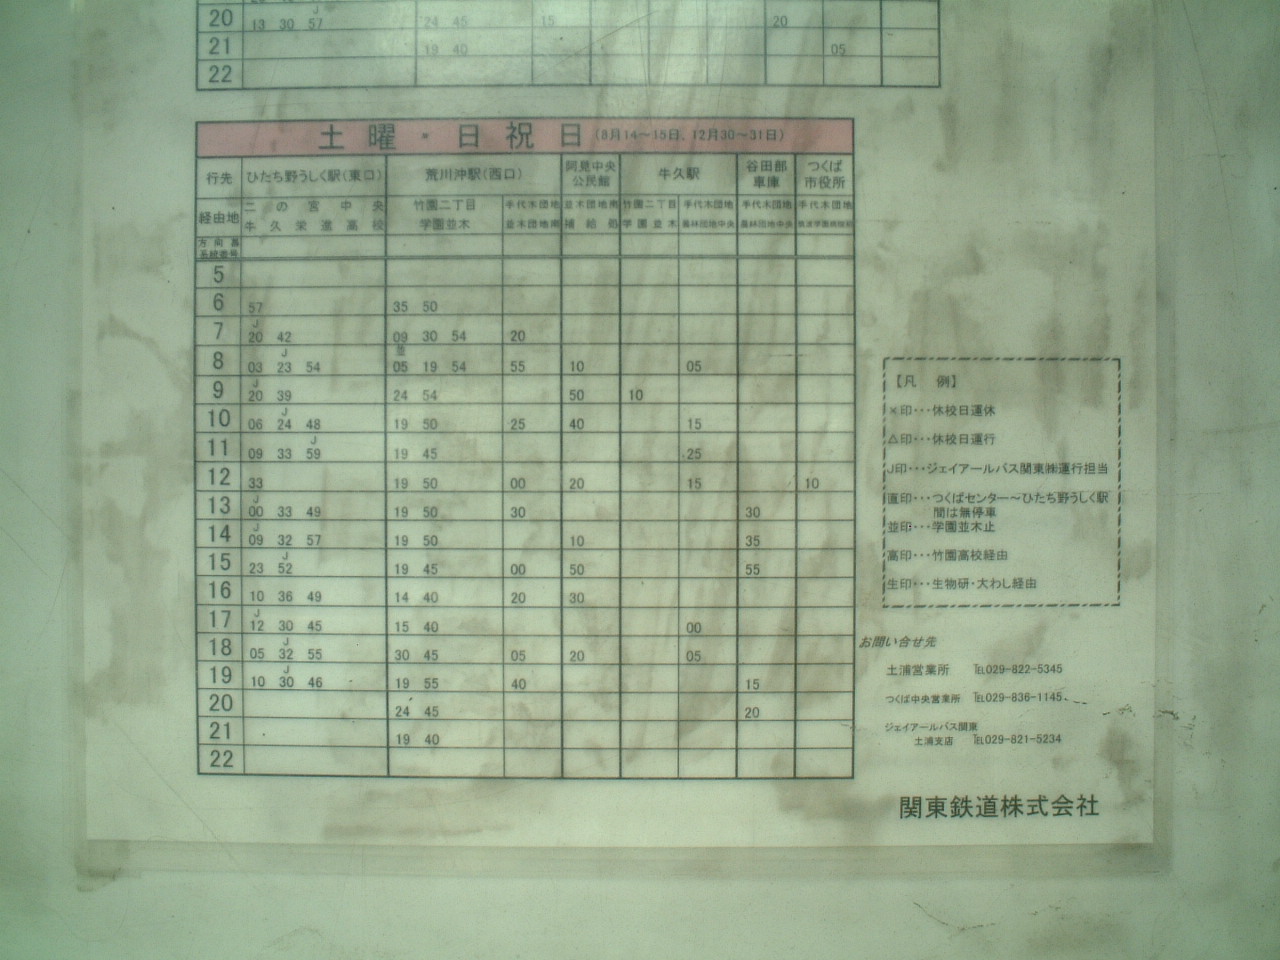 20 13 30 57 24 45 15 20
21 19 40 05
22
土 曜 ・ 日 祝 日 (8月14～15日、12月30～31日)
行先 ひたち野うしく駅(東口) 荒川沖駅(西口) 阿見中央公民館 牛久駅 谷田部車庫 つくば市役所
経由地 二の宮中央 竹園二丁目 手代木団地 並木団地南 竹園二丁目 手代木団地 手代木団地 手代木団地
牛久栄進高校 学園並木 並木団地南 補給処 学園並木 農林団地中央 農林団地中央
方向幕系統番号
5
6 57 35 50
7 J20 42 09 30 54 20
8 03 J23 54 並05 19 54 55 10 05
9 J20 39 24 54 50 10
10 06 J24 48 19 50 25 40 15
11 09 33 J59 19 45 25
12 33 19 50 00 20 15 10
13 J00 33 49 19 50 30 30
14 J09 32 57 19 50 10 35
15 23 J52 19 45 00 50 55
16 10 36 49 14 40 20 30
17 J12 30 45 15 40 00
18 05 J32 55 30 45 05 20 05
19 10 J30 46 19 55 40 15
20 24 45 20
21 19 40
22
【凡 例】
×印…休校日運休
△印…休校日運行
J印…ジェイアールバス関東㈱運行担当
直印…つくばセンター～ひたち野うしく駅
間は無停車
並印…学園並木止
高印…竹園高校経由
生印…生物研・大わし経由
お問い合せ先
土浦営業所 ℡029-822-5345
つくば中央営業所 ℡029-836-1145
ジェイアールバス関東
土浦支店 ℡029-821-5234
関東鉄道株式会社